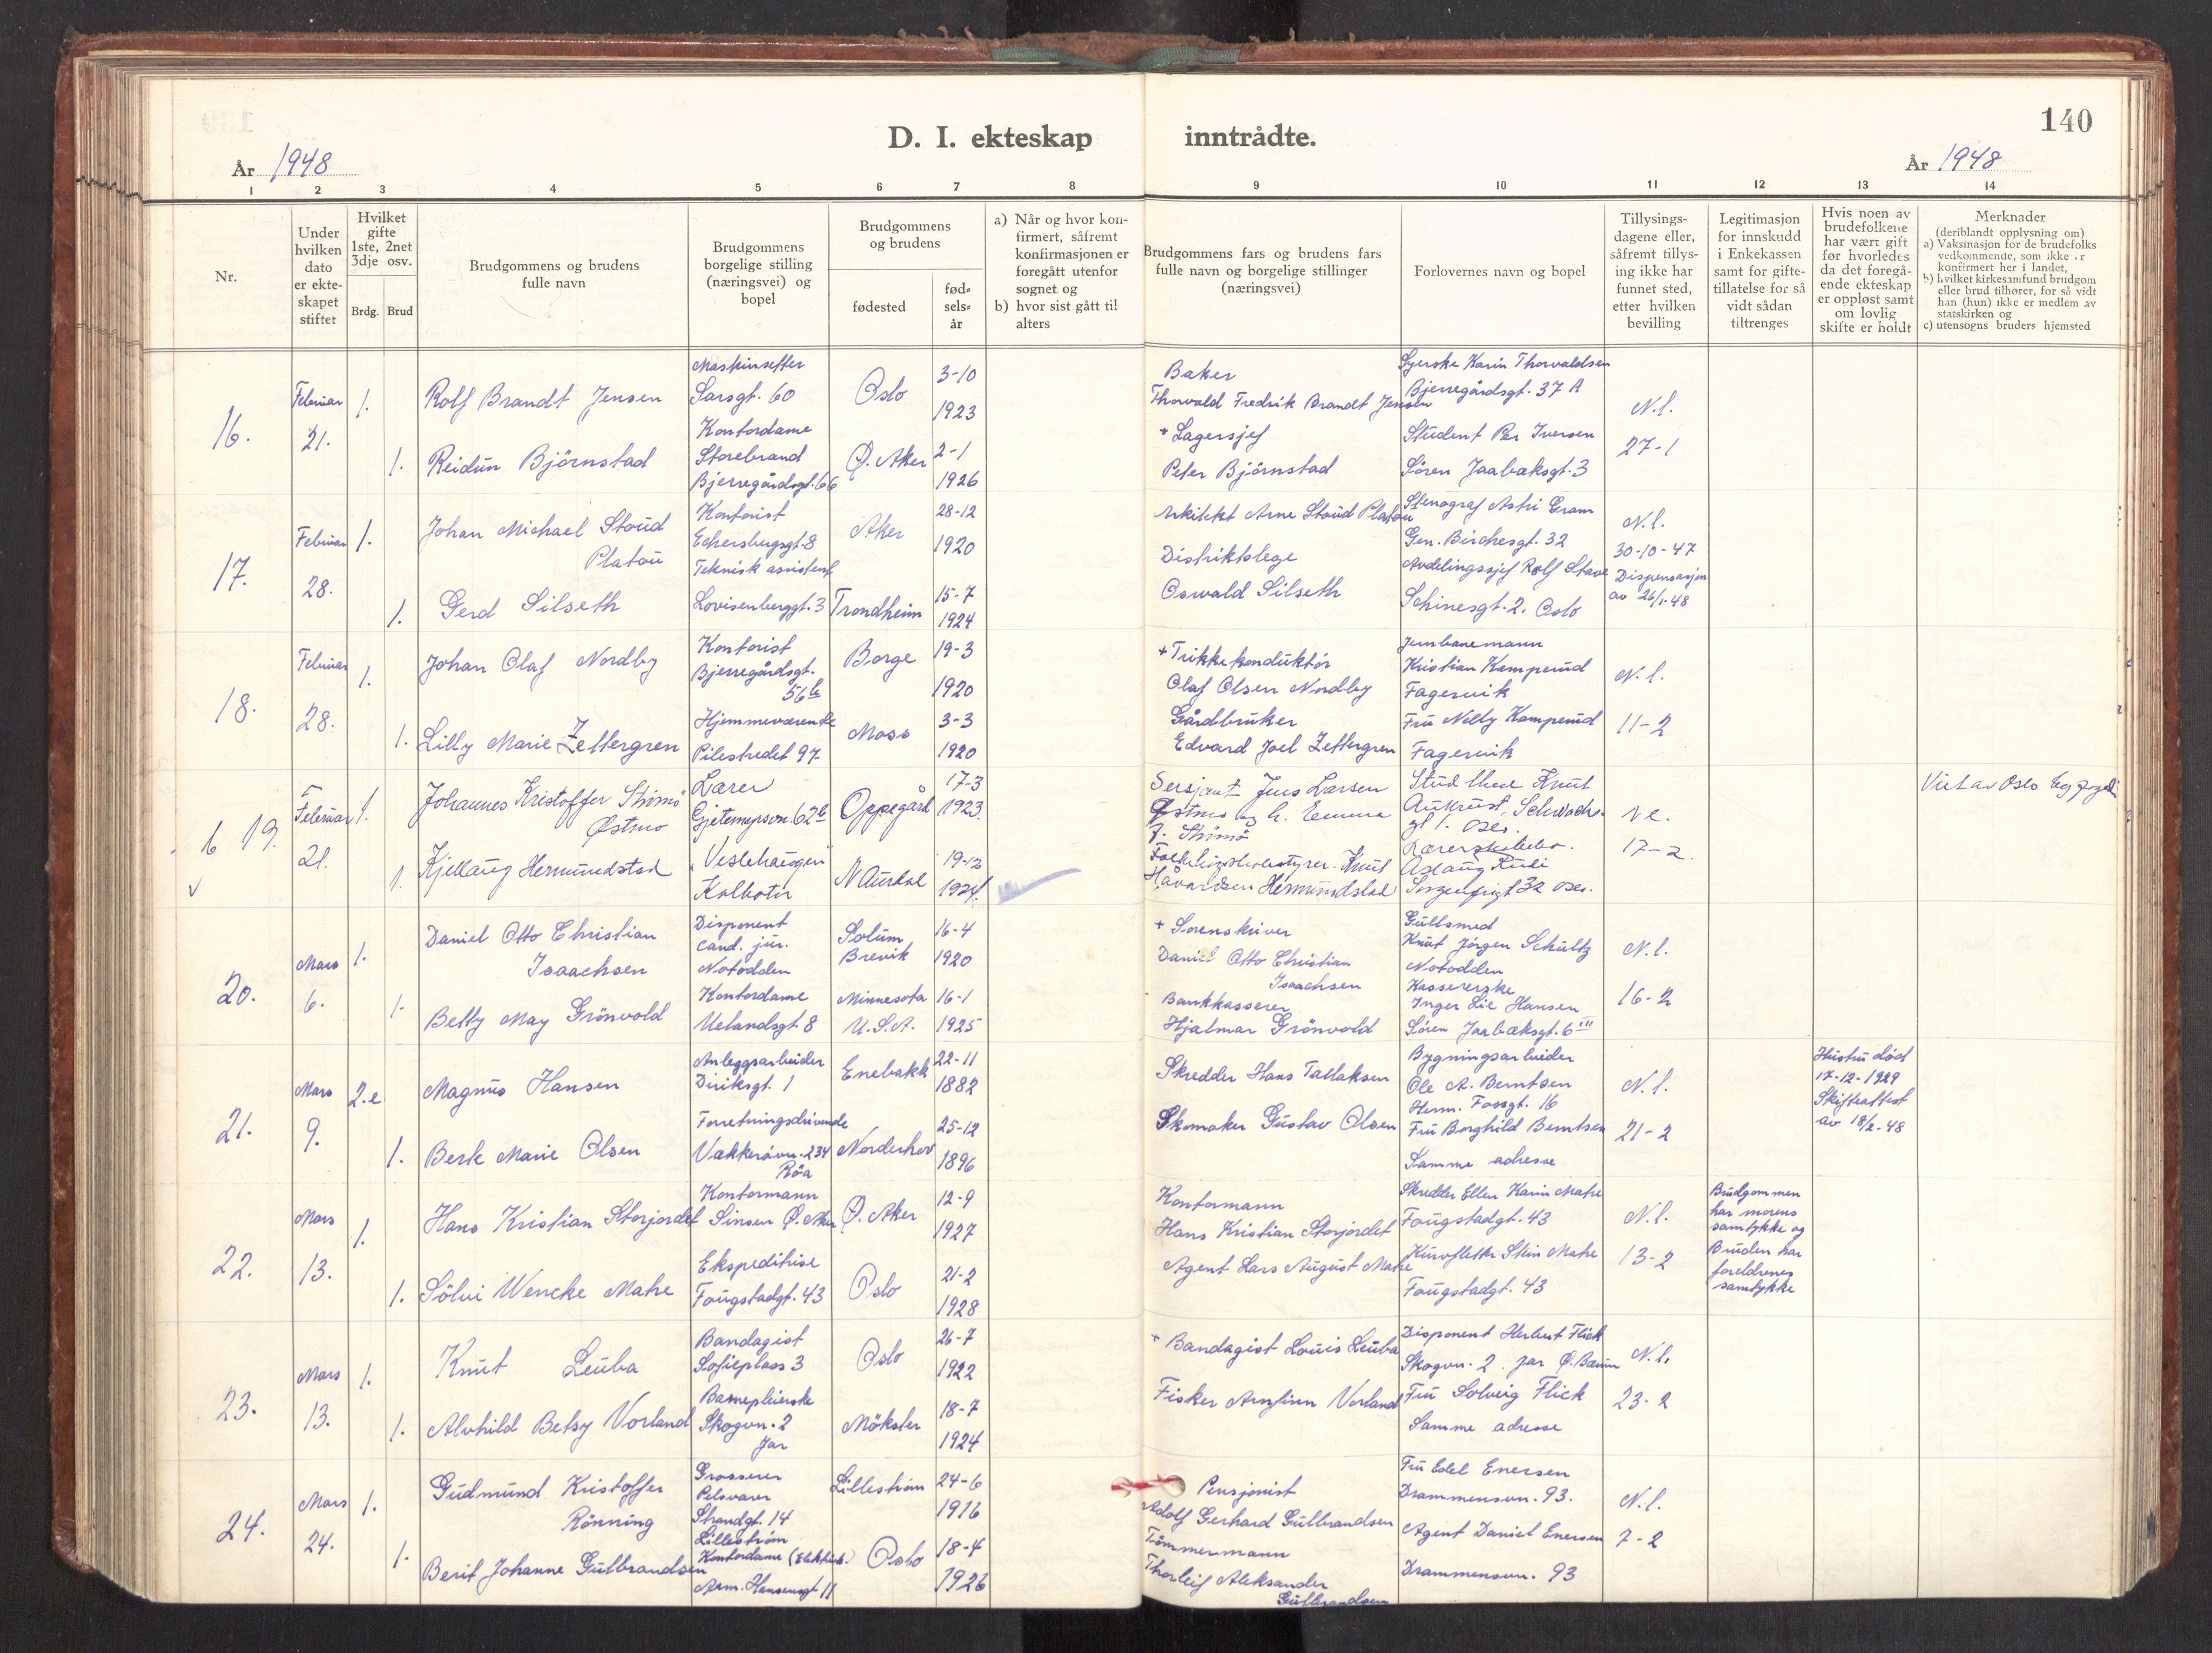 140
D. I. ekteskap inntrådte.
År 1948
År 1948
1 2 3 4 5 6 7 8 9 10 11 12 13 14
Nr.
Under
hvilken
dato
er ekte-
skapet
stiftet
Hvilket
gifte
1ste, 2net
3dje osv.
Brdg. Brud
Brudgommens og brudens
fulle navn
Brudgommens
borgelige stilling
(næringsvei) og
bopel
Brudgommens
og brudens
fødested
fød-
sels-
år
a) Når og hvor kon-
firmert, såfremt
konfirmasjonen er
foregått utenfor
sognet og
b) hvor sist gått til
alters
Brudgommens fars og brudens fars
fulle navn og borgelige stillinger
(næringsvei)
Forlovernes navn og bopel
Tillysings-
dagene eller,
såfremt tillys-
ing ikke har
funnet sted,
etter hvilken
bevilling
Legitimasjon
for innskudd
i Enkekassen
samt for gifte-
tillatelse for så
vidt sådan
tiltrenges
Hvis noen av
brudefolkene
har vært gift
før hvorledes
da det foregå-
ende ekteskap
er oppløst samt
om lovlig
skifte er holdt
Merknader
(deriblandt opplysning om)
a) Vaksinasjon for de brudefolks
vedkommende, som ikke er
konfirmert her i landet,
b) hvilket kirkesamfund brudgom
eller brud tilhører, for så vidt
han (hun) ikke er medlem av
statskirken og
c) utensogns bruders hjemsted
16.
Februar
21.
1.
1.
Rolf Brandt Jensen
Reidun Björnstad
Maskinsetter
Sarsgt. 60
Kontordame
Storebrand
Bjerregårdsgt. 66
Oslo
Ø. Aker
3-10
1923
2-1
1926
Baker
Thorvald Fredrik Brandt Jensen
+ Lagersjef
Peter Björnstad
Syerske Karin Thorvaldsen
Bjerregårdsgt. 37 A
Student Per Iversen
Sören Jaabæksgt. 3
N.l.
27-1
17.
Februar
28.
1.
1.
Johan Michael Stoud
Platou
Gerd Silseth
Kontorist
Eckersbergsgt. 8
Teknisk assistent
Lovisenberggt. 3
Aker
Trondheim
28-12
1920
15-7
1924
Arkitekt Arne Stoud Platou
Distriktslege
Oswald Silseth
Stenograf Astri Gram
Gen. Birchesgt. 32
Avdelingssjef Rolf Stave
Schinesgt. 2. Oslo
N.l.
30-10-47
Dispensasjon
av 26/1-48
18.
Februar
28.
1.
1.
Johan Olaf Nordby
Lilly Marie Zettergren
Kontorist
Bjerregårdsgt.
56b
Hjemmeværende
Pilestredet 97
Borge
Moss
19-3
1920
3-3
1920
+ Trikkekonduktör
Olaf Olsen Nordby
Gårdbruker
Edvard Joel Zettergren
Jernbanemann
Kristian Kamperud
Fagervik
Fru Nelly Kamperud
Fagervik
N.l.
11-2
19.
Februar
21.
1.
1.
Johannes Kristoffer Strömö
Østmo
Kjellaug Hermundstad
Lærer
"Veslehaugen"
Kolbotn
Oppegård
N Aurdal
17-3
1923.
19-12
1924.
Sersjant Jens Larsen
Østmo og h. Emma
J. Strömö
Knut
Håvardsen Hermundstad
Stud theol Knut
Aukrust,
17-2.
20.
Mars
6.
1.
1.
Daniel Otto Christian
Isaachsen
Betty May Grönvold
Disponent
cand. jur.
Notodden
Kontordame
Uelandsgt. 8
Solum
Brevik
Minnesota
U.S.A.
16-4
1920
16-1
1925
+ Sorenskriver
Daniel Otto Christian
Isaachsen
Bankkasserer
Hjalmar Grönvold
Gullsmed
Knut Jörgen Schultz
Notodden
Kassererske
Inger Lie Hansen
Sören Jaabæksgt. 6 III
N.l.
16-2
21.
Mars
9.
2.e
1.
Magnus Hansen
Berte Marie Olsen
Anleggsarbeider
Diriksgt. 1
Forretningsdrivende
Vækkeröv. 234
Röa
Enebakk
Norderhov
22-11
1882
25-12
1896
Skredder Hans Tallaksen
Skomaker Gustav Olsen
Bygningsarbeider
Ole A. Berntsen
Herm. Fossgt. 16
Fru Borghild Berntsen
Samme adresse
N.l.
21-2
Hustru död
17-12-1929
Skifteattest
av 18/2-48
22.
Mars
13.
1.
1.
Hans Kristian Storjordet
Sölvi Wencke Matre
Kontormann
Sinsen Ø. Aker
Ekspeditrise
Fougstadgt. 43
Ø. Aker
Oslo
12-9
1927
21-2
1928
Kontormann
Hans Kristian Storjordet
Agent Lars August Matre
Skredder Ellen Karin Matre
Fougstadgt. 43
Kurvfletter Stein Matre
Fougstadgt. 43
N.l.
13-2
Brudgommen
har morens
samtykke og
Bruden har
foreldrenes
samtykke
23.
Mars
13.
1.
1.
Knut Leuba
Alvhild Betsy Vorland
Bandagist
Sofieplass 3
Barnepleierske
Skogvn. 2
Jar
Oslo
Mökster
26-7
1922
18-7
1924
+ Bandagist Louis Leuba
Fisker Arnfinn Vorland
Disponent Herbert Flick
Skogvn. 2. Jar Ø. Bærum
Fru Solveig Flick
Samme adresse
N.l.
23-2
24.
Mars
24.
1.
1.
Gudmund Kristoffer
Rönning
Berit Johanne Gulbrandsen
Grosserer
Pelsvarer
Strandgt. 14
Lilleström
Kontordame
Arm. Hansensgt 11
Lilleström
Oslo
24-6
1916
18-4
1926
Pensjonist
Adolf Gerhard Gulbrandsen
Tömmermann
Thorleif Aleksander
Gulbrandsen
Fru Edel Enersen
Drammensvn. 93.
Agent Daniel Enersen
Drammensvn. 93
N.l.
7-2